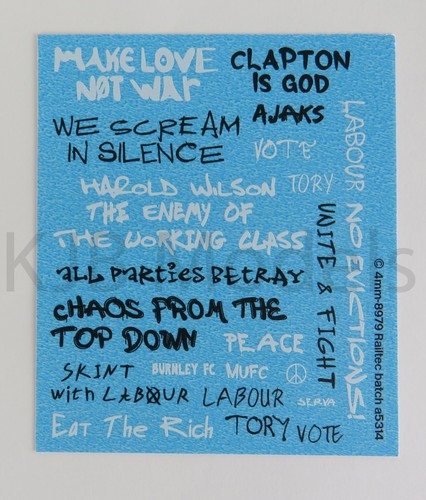 MAKE LOVE
NOT WAR
CLAPTON
IS GOD
AJAKS
WE SCREAM
IN SILENCE
VOTE
TORY
LABOUR
HAROLD WILSON
THE ENEMY OF
THE WORKING CLASS
NO EVICTIONS!
UNITE & FIGHT
all Parties BETRAY
CHAOS FROM THE
TOP DOWN
PEACE
SKINT
with LABOUR
BURNLEY FC
MUFC
LABOUR
SERVA
Eat The Rich
TORY
VOTE
© 4mm-8979 Railtec batch a5314
KJB Models